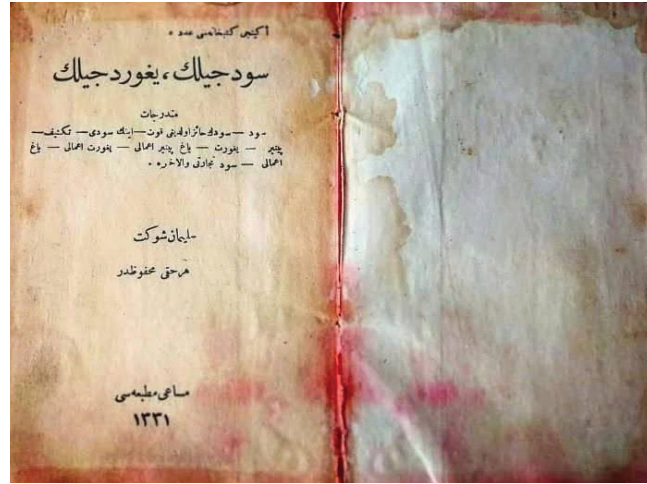 اكينجى كتبخانه‌سى عدد ٥
سودجيلك، يغوردجيلك
مندرجات
سود — سودك حائز اولديغى قوت — اينك سودى — تكثيف —
پينير — يغورت — ياغ پينير اعمالى — يغورت اعمالى — ياغ
اعمالى — سود تجارتى والاخره ٠
سليمان شوكت
هر حقى محفوظدر
مساعى مطبعه‌سى
١٣٣١